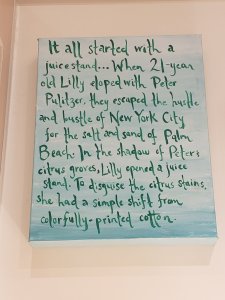 It all started with a
juice stand... When 21-year
old Lilly eloped with Peter
Pulitzer, they escaped the hustle
and bustle of New York City
for the salt and sand of Palm
Beach. In the shadow of Peter's
citrus groves, Lilly opened a juice
stand. To disguise the citrus stains,
she had a simple shift from
colorfully-printed cotton.